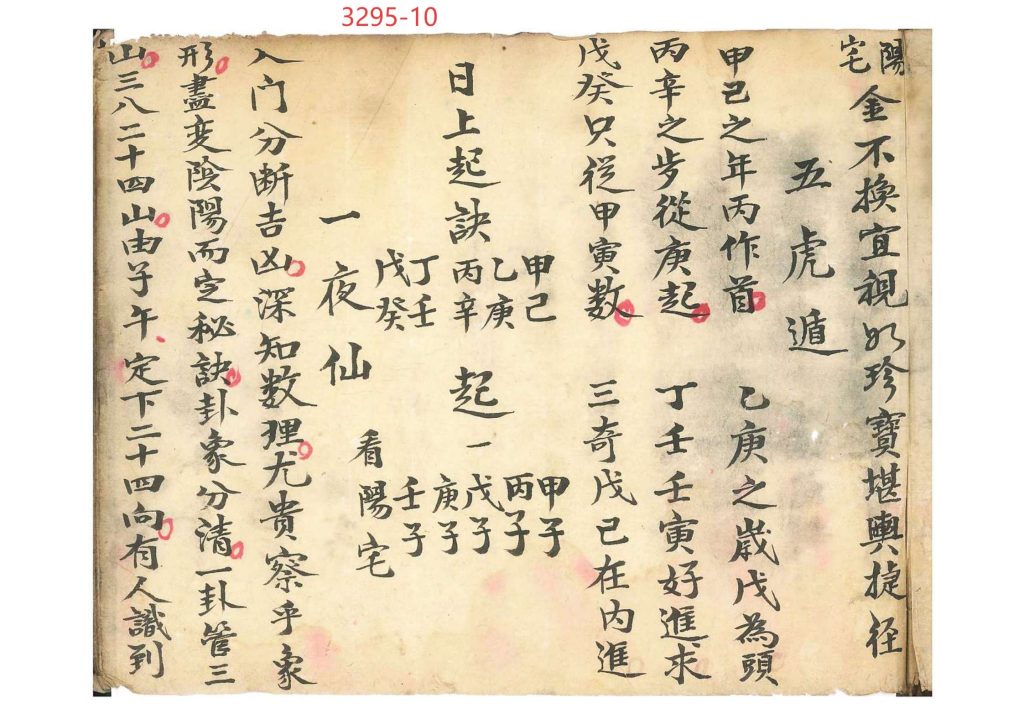 3295-10
陽宅金不換宜視如珍寶堪輿捷徑
五虎遁
甲己之年丙作首 乙庚之歲戊為頭
丙辛之步從庚起 丁壬壬寅好進求
戊癸只從甲寅數 三奇戊己在內進
日上起訣 甲己 乙庚 丙辛 丁壬 戊癸 起一 甲子 丙子 戊子 庚子 壬子
一夜仙 看陽宅
入门分断吉凶深知数理尤貴察乎象
形盡变陰陽而定秘訣卦象分清一卦管三
山三八二十四山由子午定下二十四向有人識到